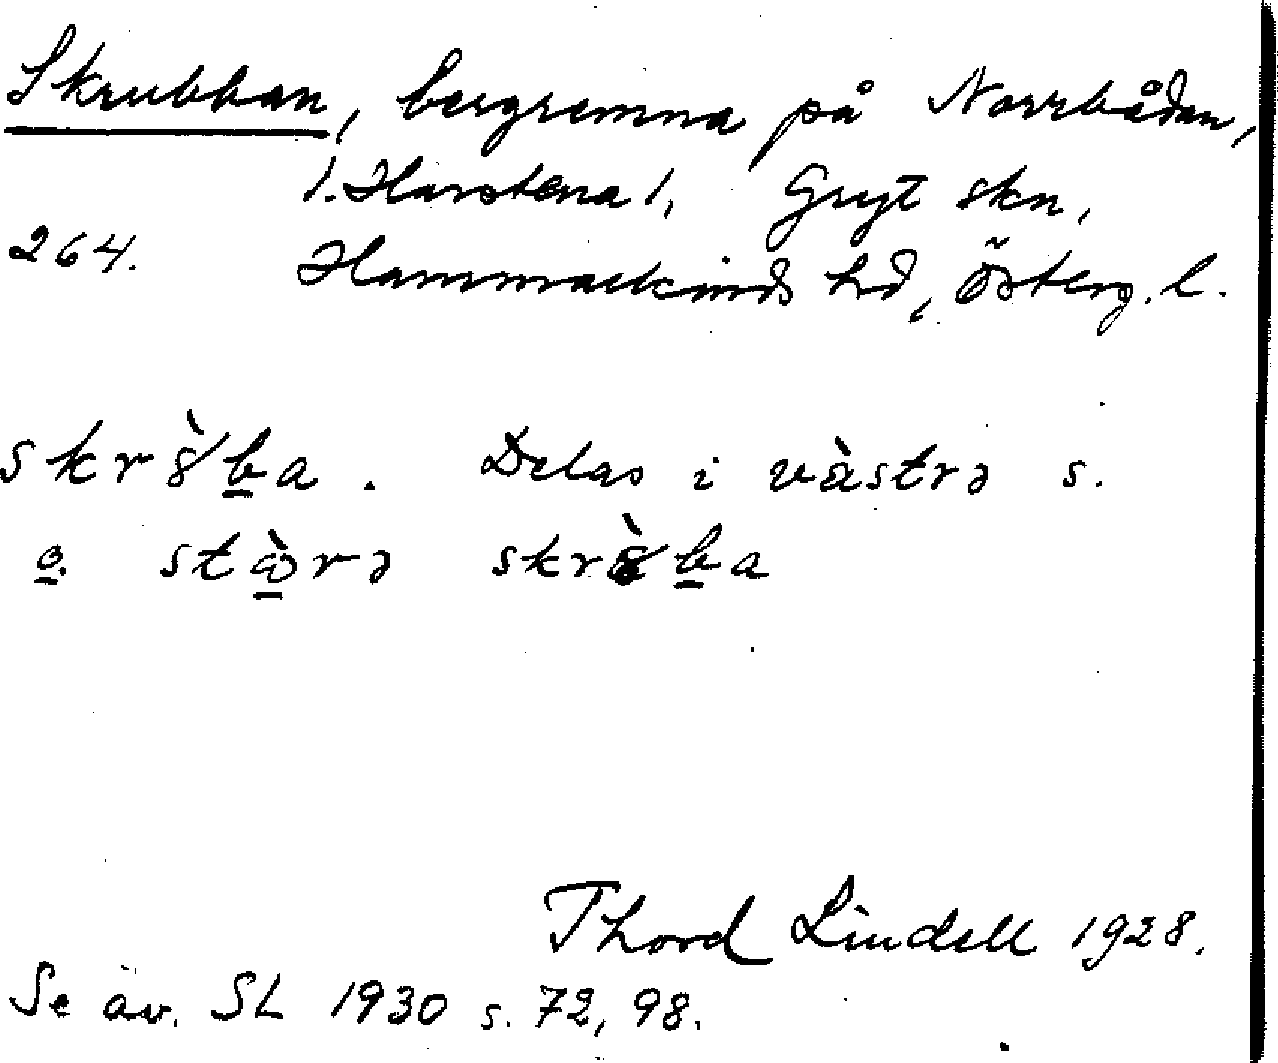 Skrubban, bergremna på Norrbådan,
1. Harstena 1, Gryt skn,
264. Hammarkinds hd, Österg. l.
skrȣ̀ba. Delas i vàstrə s.
o. stòrə skrȣ̀ba
Thord Lindell 1928.
Se äv. SL 1930 s. 72, 98.